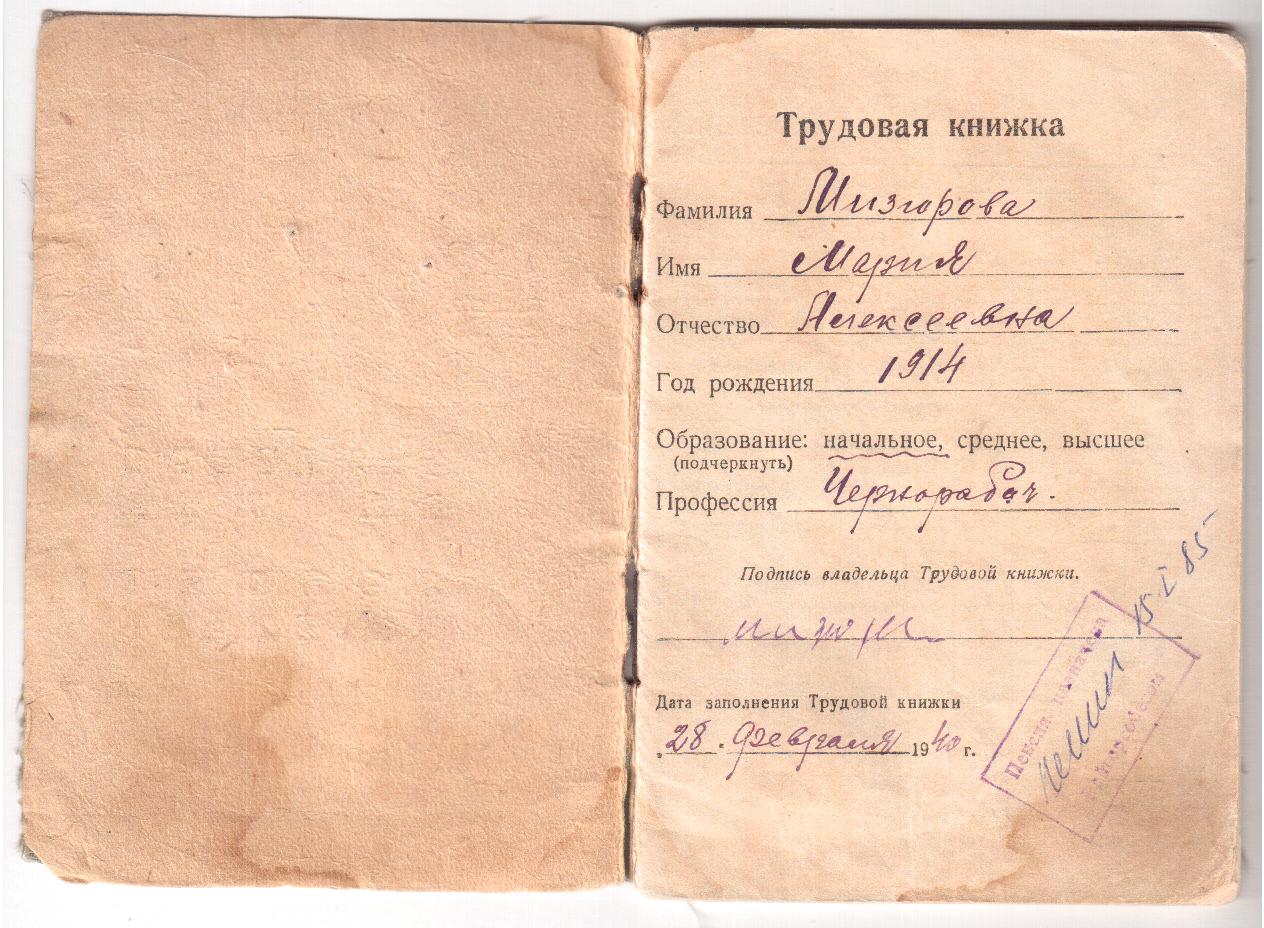 Трудовая книжка
Фамилия Мизгорова
Имя Мария
Отчество Алексеевна
Год рождения 1914
Образование: начальное, среднее, высшее
(подчеркнуть)
Профессия Чернорабоч.
Подпись владельца Трудовой книжки.
Дата заполнения Трудовой книжки
„28 " февраля 1940 г.
Пенсия назначена
15 I 85